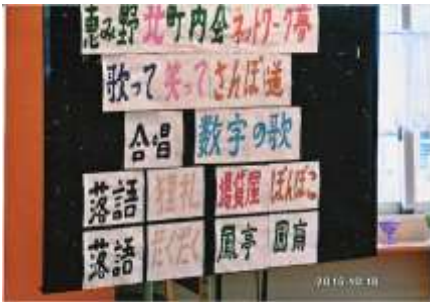 恵み野北町内会ネットワーク夢
歌って笑ってさんぽ道
合唱 数字の歌
落語 狸札 湯貸屋 ぽんぽこ
落語 だくだく 風亭 圓斎
2015.10.18